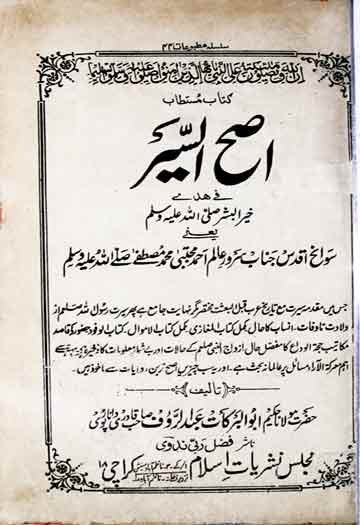 سلسلہ مطبوعات ۴۴
کتاب مستطاب
اصح السیر
فی ھدی
خیر البشر صلی اللہ علیہ وسلم
یعنی
سوانح اقدس جناب سرور عالم احمد مجتبی محمد مصطفے صلے اللہ علیہ وسلم
جس میں مقدمہ سیرت مع تاریخ عرب قبل البعثت مختصر مگر نہایت جامع ہے پھر سیرت رسول اللہ صلعم از
ولادت تا وفات، انساب کا حال، مکمل کتاب المغازی، مکمل کتاب الاموال، کتاب الوفود
مکاتیب حجۃ الوداع کا مفصل حال ازواج النبی صلعم کے حالات اور بے شمار معلومات کا ذخیرہ
اہم معرکۃ الآرا مسائل پر عالمانہ بحث ہے۔ اور یہ سب چیزیں اصح ترین روایات سے ماخوذ ہیں۔
تالیف
حضرت مولانا حکیم ابو البرکات عبد الرؤف صاحب قادری دانا پوری
ناشر فضل ربی ندوی
مجلس نشریات اسلام کراچی ۱۸